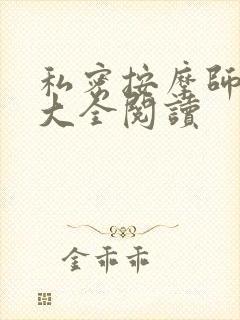 私密按摩师
大全閱讀
金乖乖